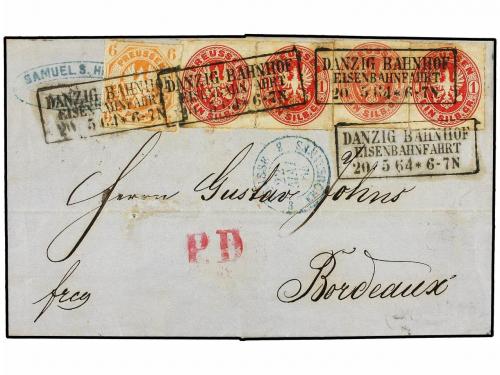 SAMUEL S. H
6 PREUSSEN 6
PREUSSEN
EIN SILB.GR.
1
DANZIG BAHNHOF
EISENBAHNFAHRT
5 64 * 6-7N
DANZIG BAHNHOF
64 * 6-7N
DANZIG BAHNHOF
EISENBAHNFAHRT
20 5 64 * 6-7N
DANZIG BAHNHOF
EISENBAHNFAHRT
20 5 64 * 6-7N
Herrn Gustav Johns
P.D
frco
Bordeaux